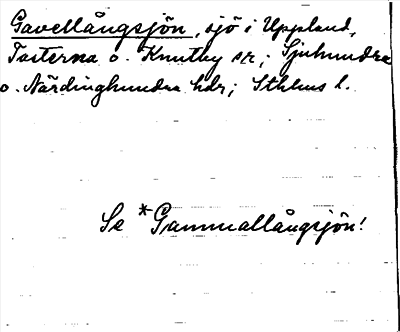 Gavellångsjön, sjö i Uppland,
Fasterna o. Knutby sr; Sjuhundra
o. Närdinghundra hdr; Sthlms l.
Se *Gammallångsjön!